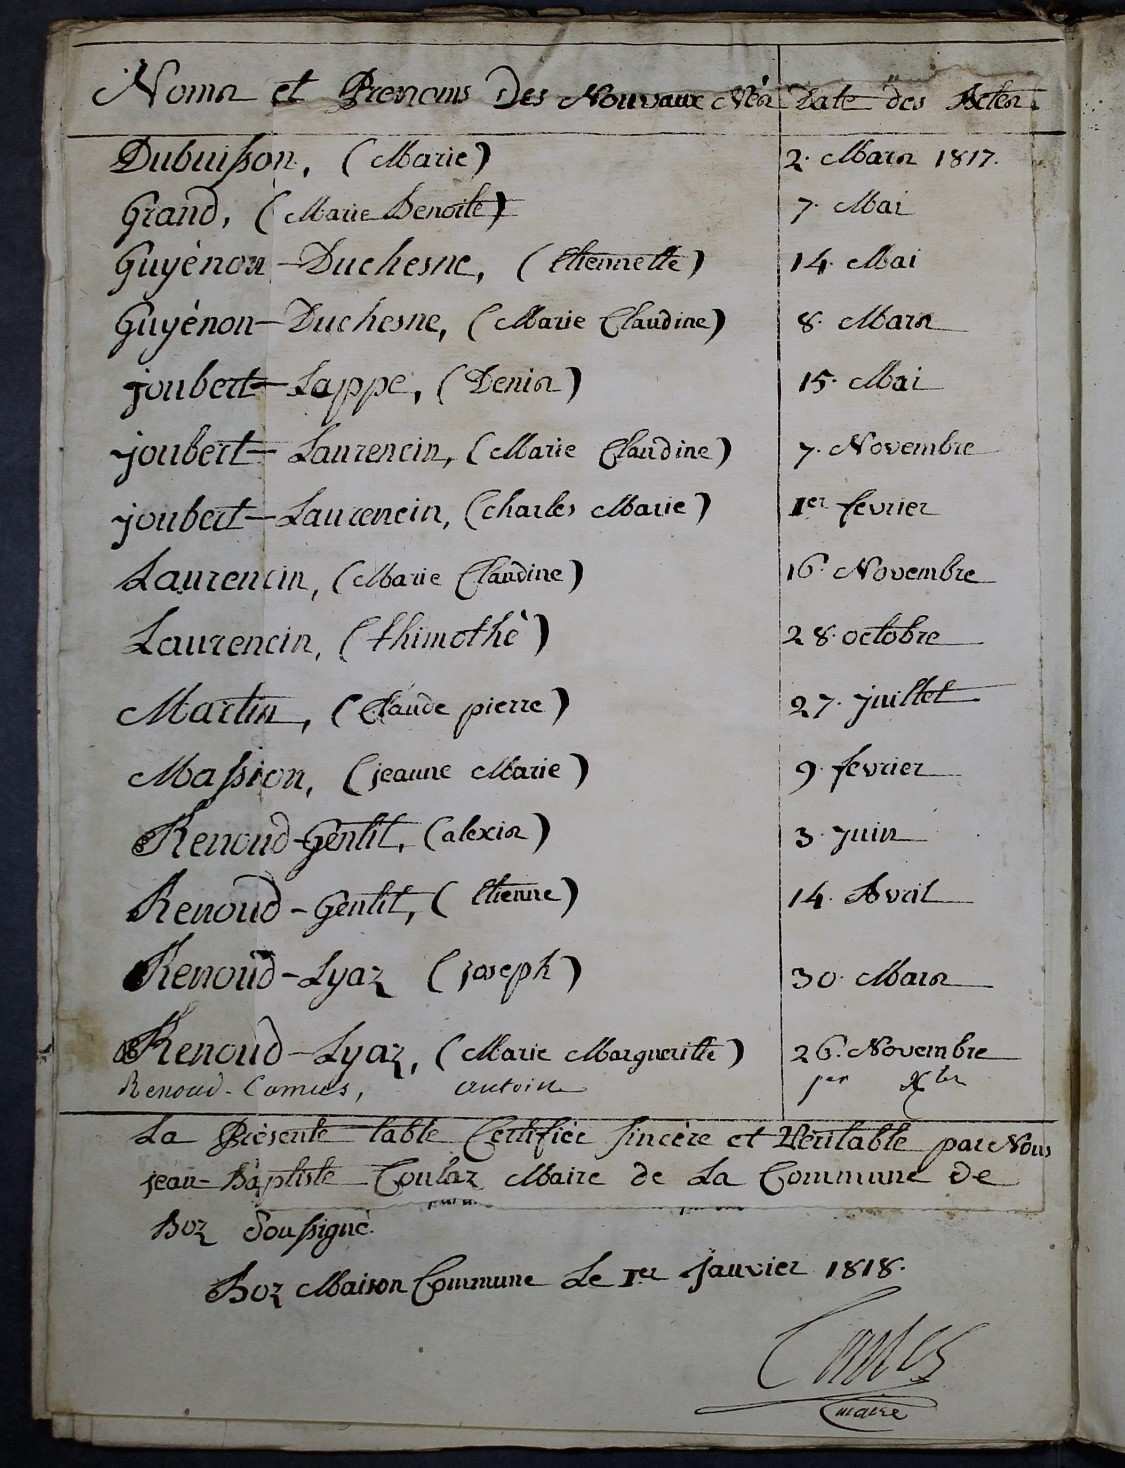 Noms et Prenoms Des Nouvaux Nés Date des Actes.
Dubuisson, (Marie) 2. Mars 1817.
Grand, (Marie Benoite) 7. Mai
Guyénon-Duchesne, (Etiennette) 14. Mai
Guyénon-Duchesne, (Marie Claudine) 8. Mars
joubert-Lappe, (Denis) 15. Mai
joubert-Laurencin, (Marie Claudine) 7. Novembre
joubert-Laurencin, (charles Marie) 1er fevrier
Laurencin, (Marie Claudine) 16. Novembre
Laurencin, (thimothé) 28. octobre
Martin, (Claude pierre) 27. juillet
Massion, (jeanne Marie) 9. fevrier
Renoud-Gentit, (alexis) 3. juin
Renoud-Gentit, (Etienne) 14. Avril
Renoud-Lyaz (joseph) 30. Mars
Renoud-Lyaz, (Marie Margueritte) 26. Novembre
Renoud-Comus, antoine per Xbr
La Présente table Certifiée Sincère et Véritable par Nous
jean-Baptiste Coulaz Maire de La Commune de
Boz Soussigné.
Boz Maison Commune Le 1er Janvier 1818.
maire